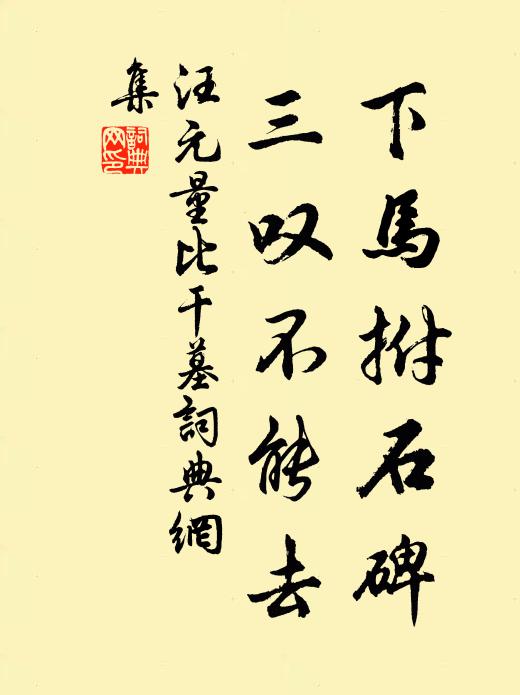 下馬拊石碑
三叹不能去
汪元量比干墓詞典網
集
詞典网印